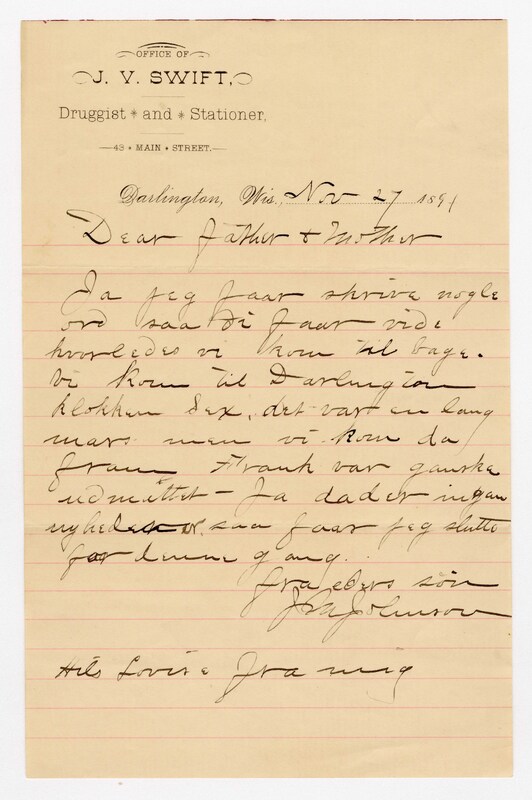 OFFICE OF
J. V. SWIFT,
Druggist * and * Stationer,
43 * MAIN * STREET.
Darlington, Wis., Nov 27 1891
Dear father & Mother
Ja jeg faar skrive nogle
ord saa di faar vide
hvorledes vi kom til bage.
Vi kom til Darlington
klokken Sex, det var en lang
mars men vi kom da
fram Frank var ganske
udmattet - Ja da der ingen
nyheder saa faar jeg slutte
for denne gang.
fra eders sön
Johnson
Hils Lovise fra mig